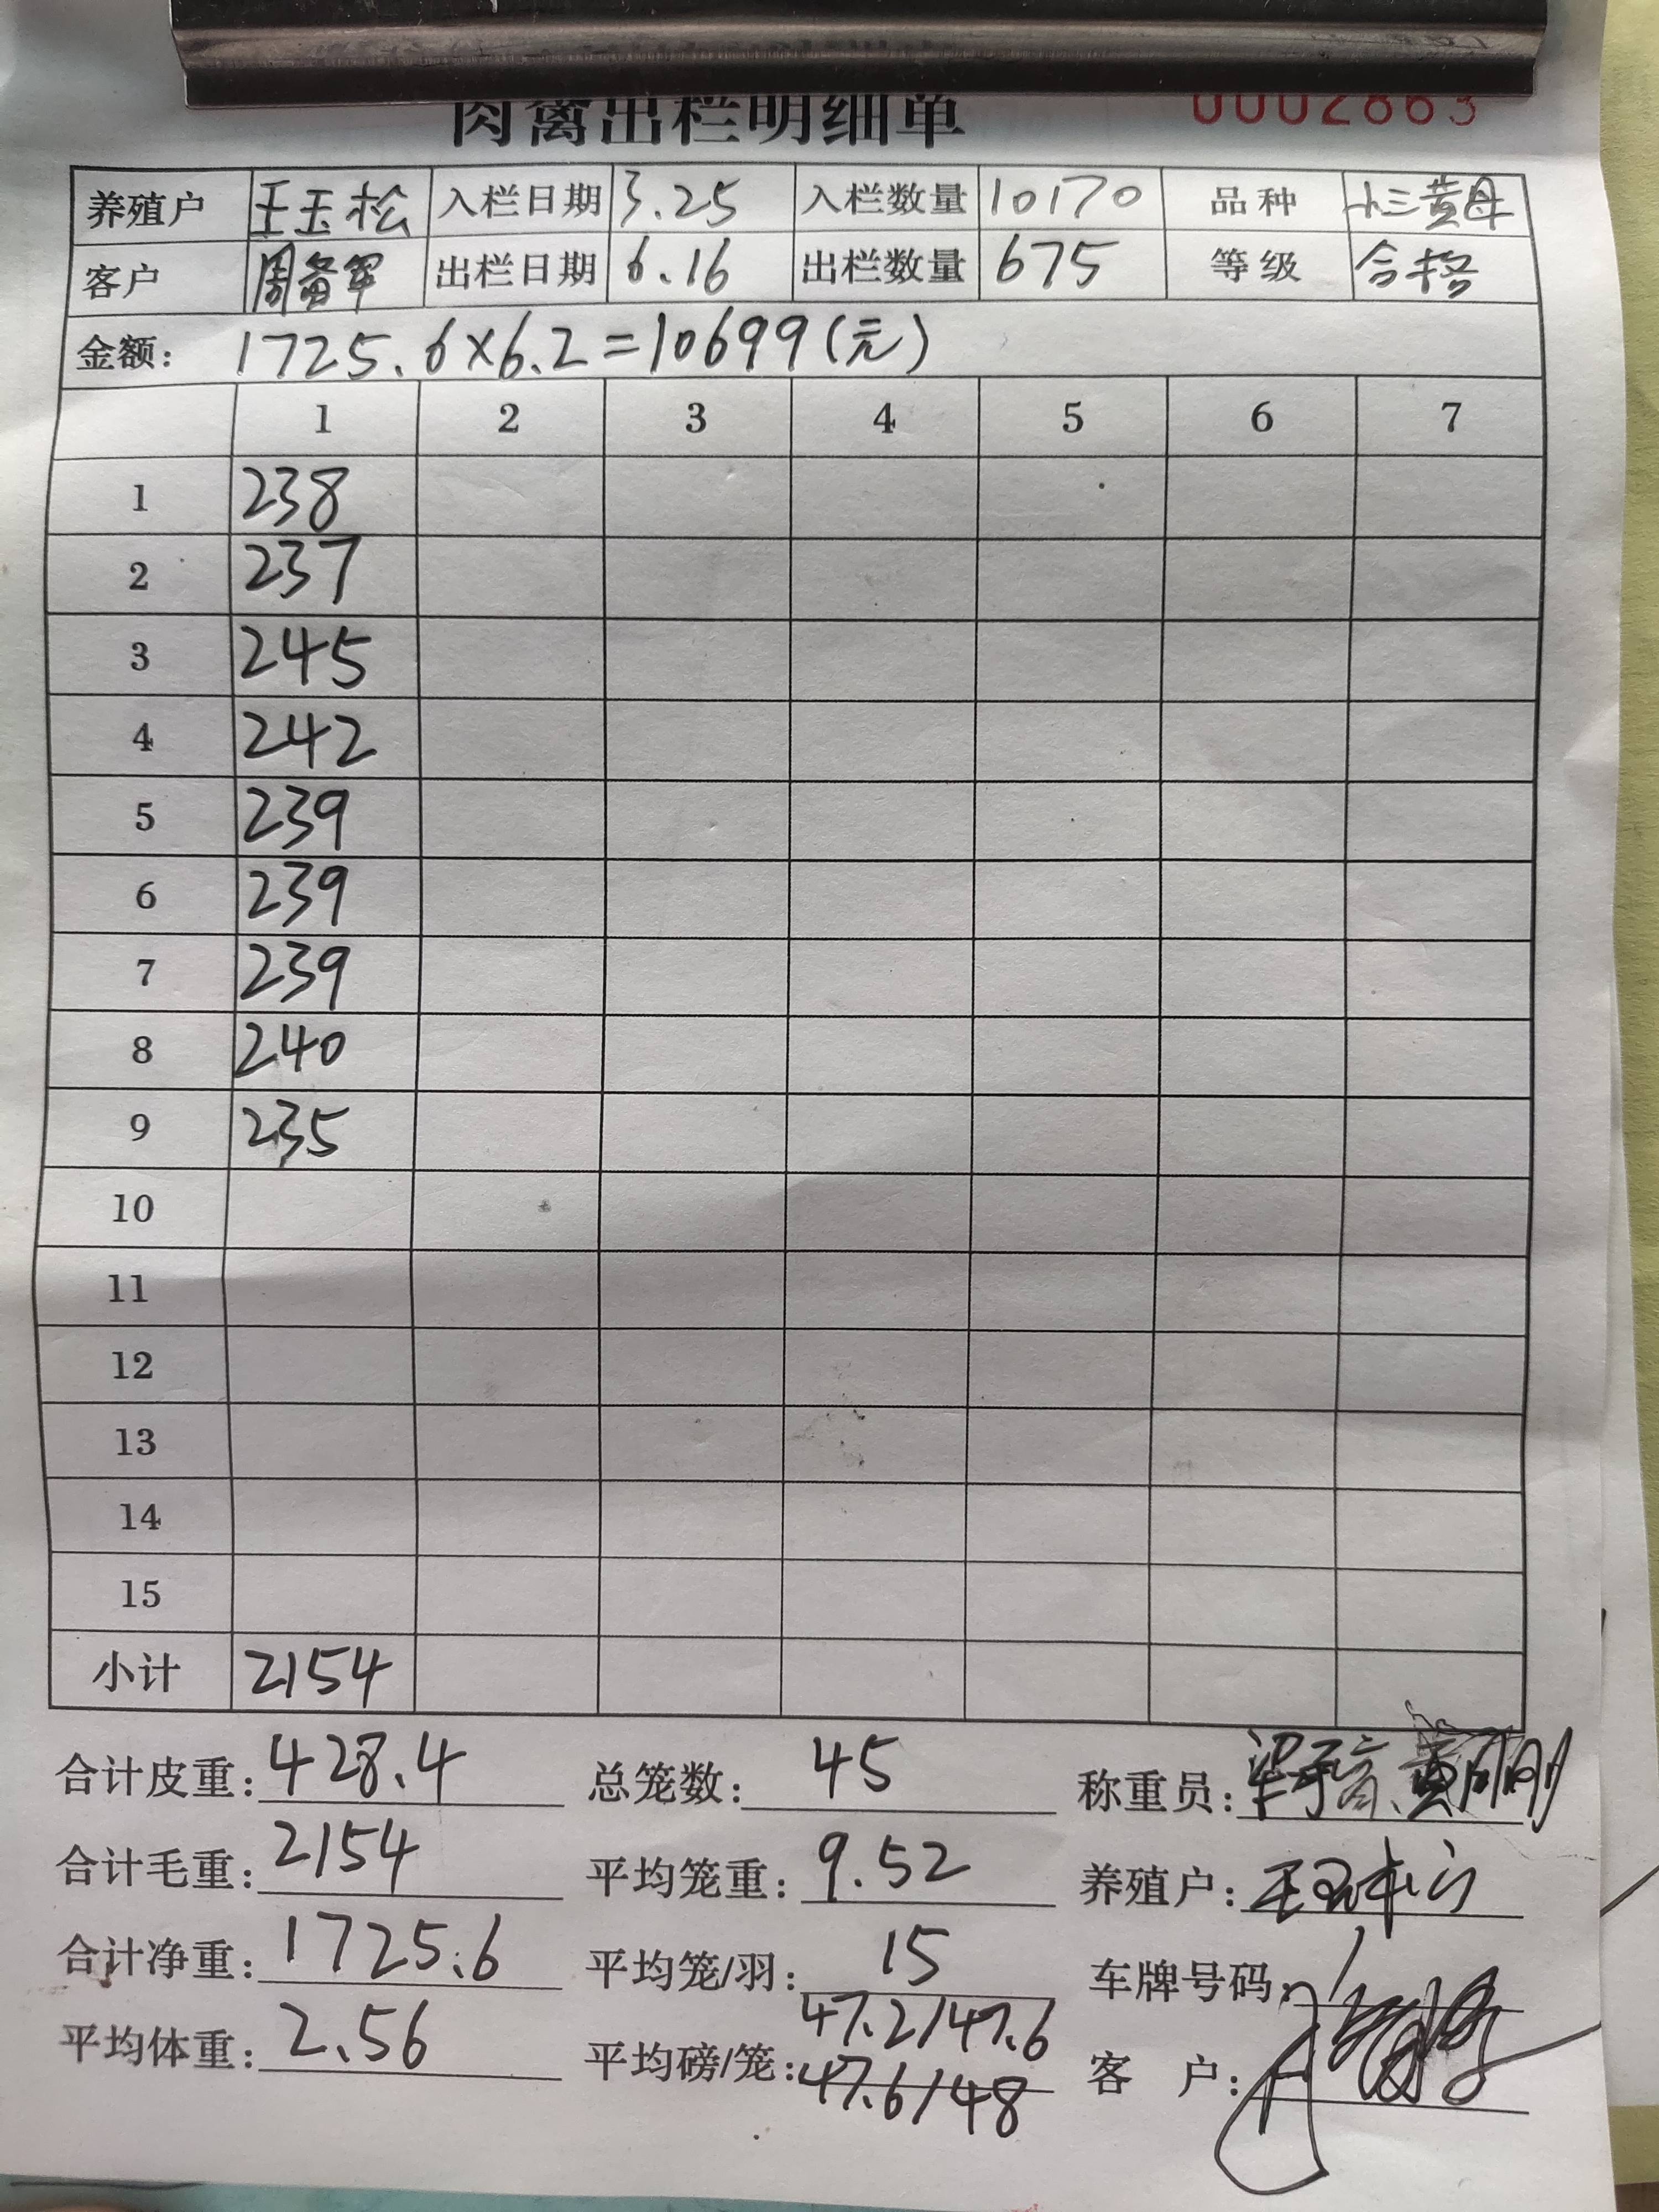 肉禽出栏明细单 0002863
养殖户 王玉松 入栏日期 3.25 入栏数量 10170 品种 小三黄母
客户 周备军 出栏日期 6.16 出栏数量 675 等级 合格
金额: 1725.6×6.2=10699(元)
1 2 3 4 5 6 7
1 238
2 237
3 245
4 242
5 239
6 239
7 239
8 240
9 235
10
11
12
13
14
15
小计 2154
合计皮重: 428.4 总笼数: 45 称重员:
合计毛重: 2154 平均笼重: 9.52 养殖户:
合计净重: 1725.6 平均笼/羽: 15 车牌号码:
平均体重: 2.56 平均磅/笼: 47.2/47.6
47.6/48 客户: